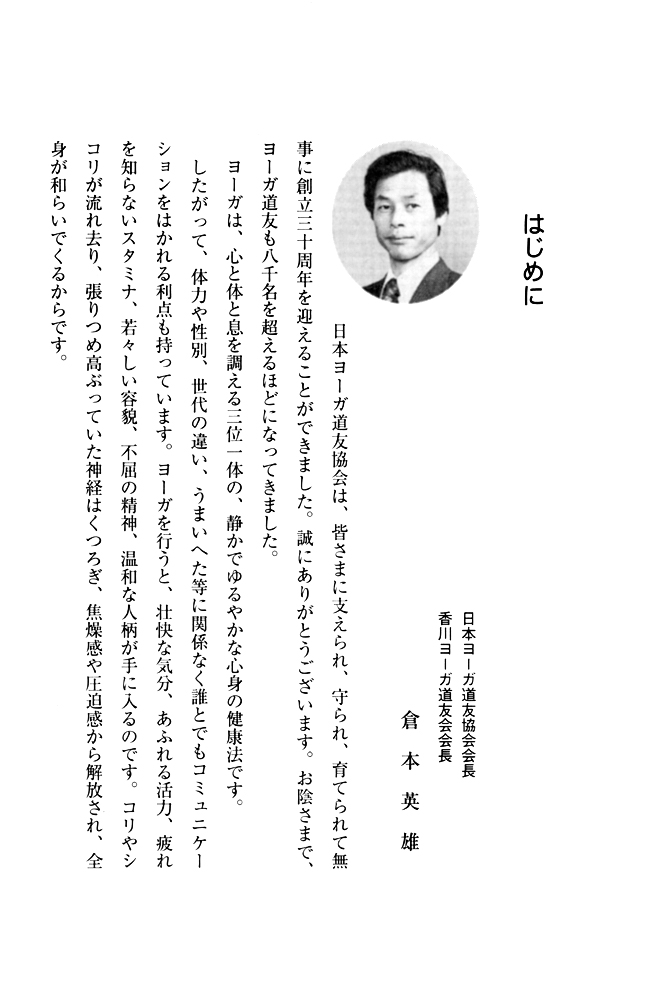 はじめに
日本ヨーガ道友協会会長
香川ヨーガ道友会会長
倉本英雄
日本ヨーガ道友協会は、皆さまに支えられ、守られ、育てられて無
事に創立三十周年を迎えることができました。誠にありがとうございます。お陰さまで、
ヨーガ道友も八千名を超えるほどになってきました。
ヨーガは、心と体と息を調える三位一体の、静かでゆるやかな心身の健康法です。
したがって、体力や性別、世代の違い、うまいへた等に関係なく誰とでもコミュニケー
ションをはかれる利点も持っています。ヨーガを行うと、壮快な気分、あふれる活力、疲れ
を知らないスタミナ、若々しい容貌、不屈の精神、温和な人柄が手に入るのです。コリやシ
コリが流れ去り、張りつめ高ぶっていた神経はくつろぎ、焦燥感や圧迫感から解放され、全
身が和らいでくるからです。